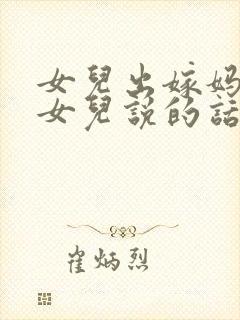 女兒出嫁媽
女兒說的話
崔炳烈